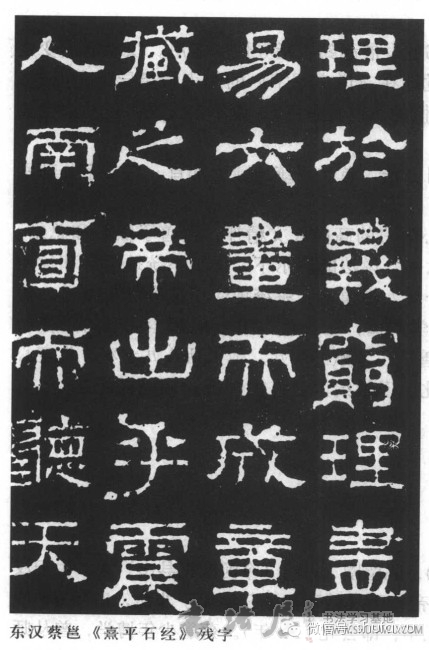 理於義窮理盡
易六畫而成章
藏之帝出乎震
人南面而聽天
东汉蔡邕《熹平石经》残字
书法学习基地